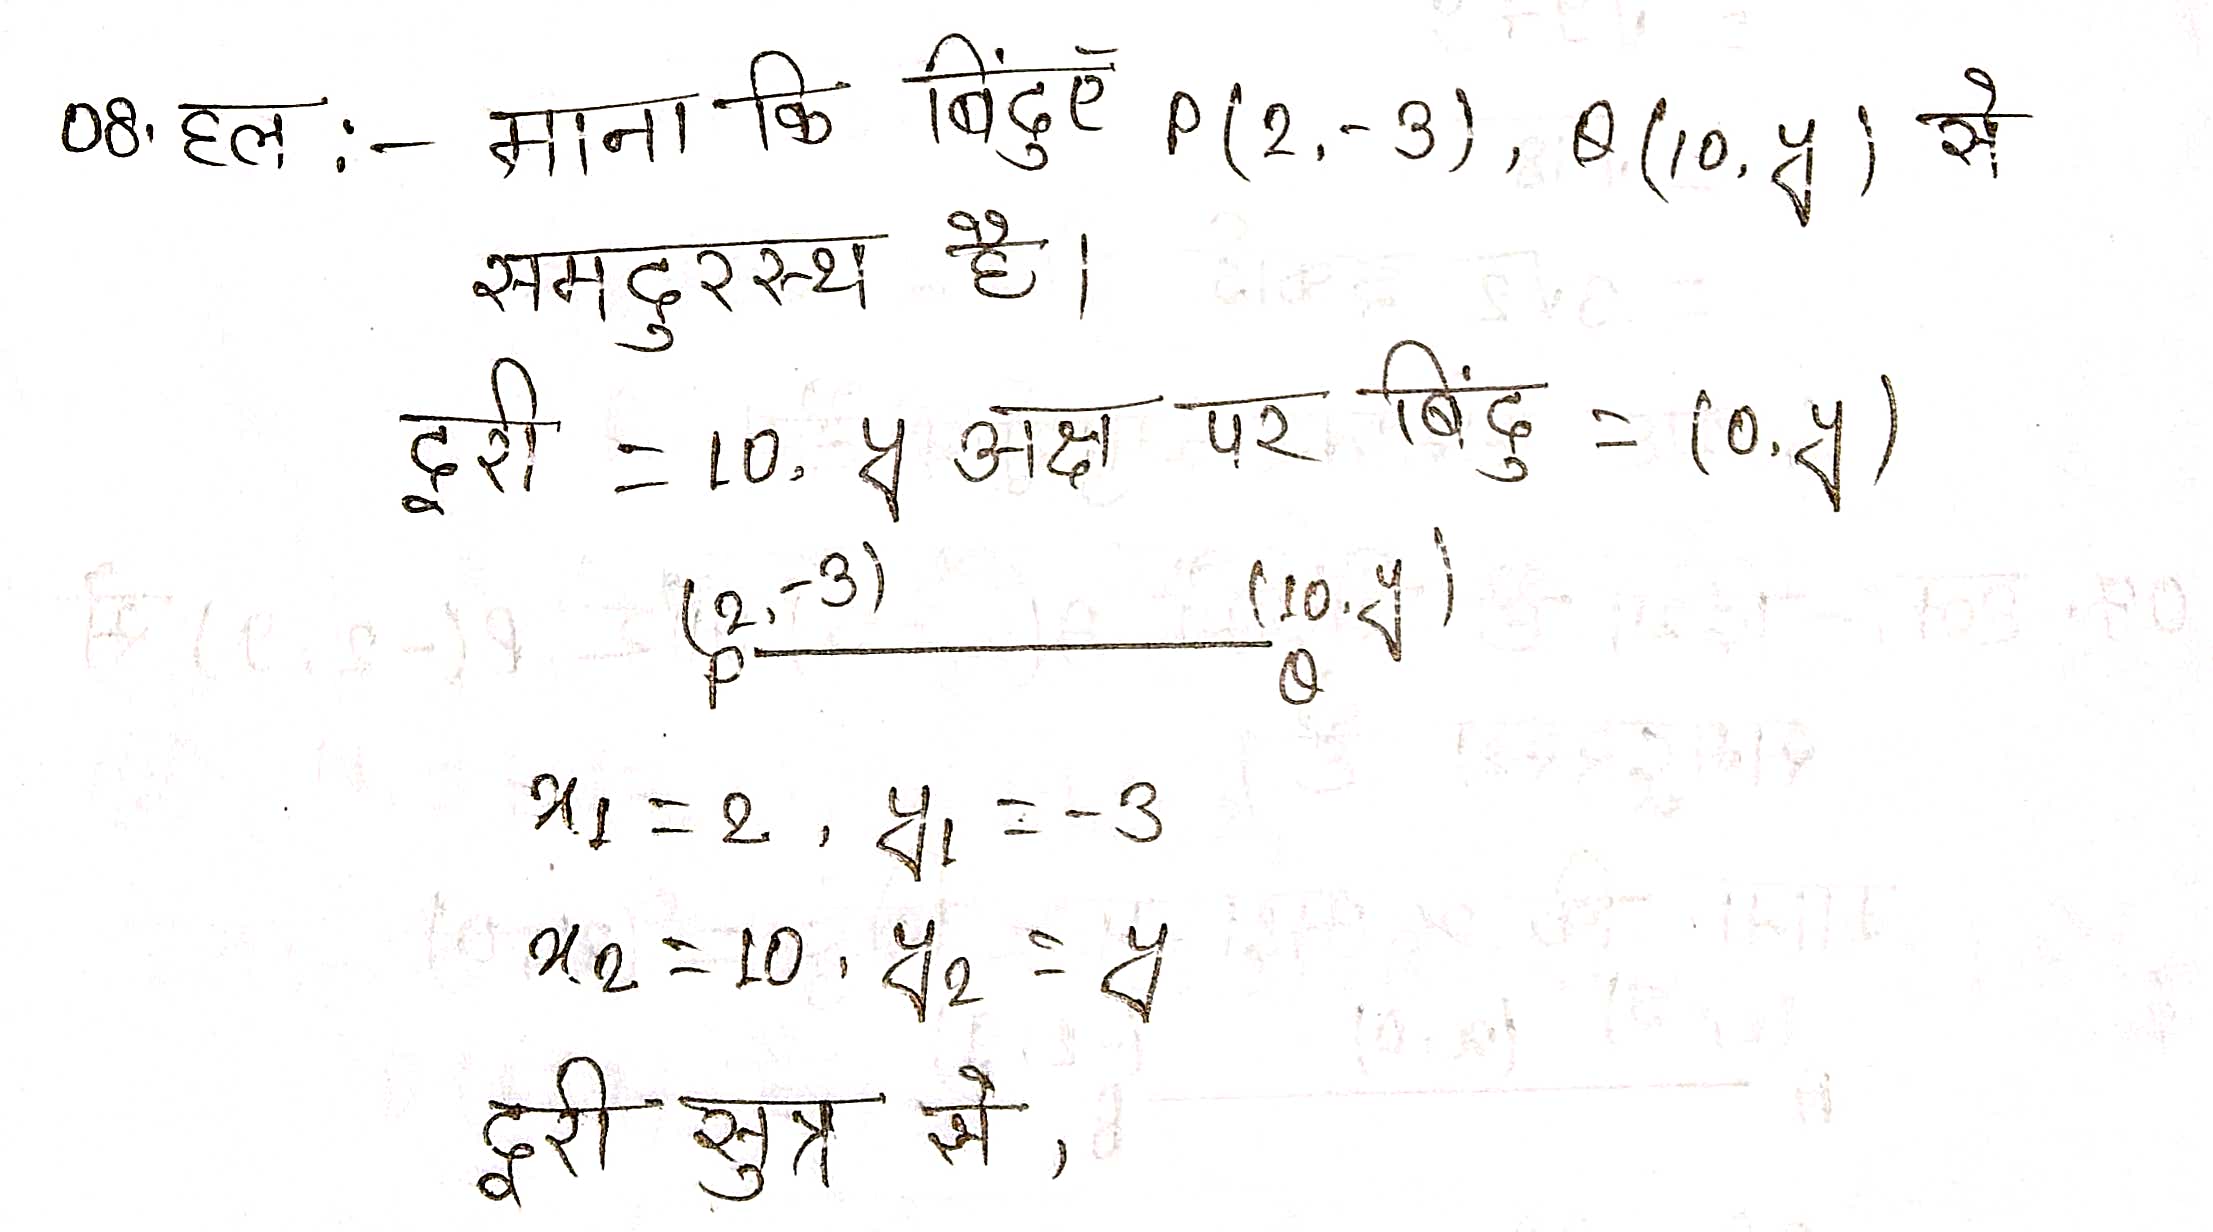 08. हल :- माना कि बिंदुएँ P(2,-3), Q(10,y) से
समदुरस्थ है।
दूरी = 10, y अक्ष पर बिंदु = (0,y)
(2,-3) (10,y)
P Q
x₁ = 2, y₁ = -3
x₂ = 10, y₂ = y
दूरी सुत्र से,